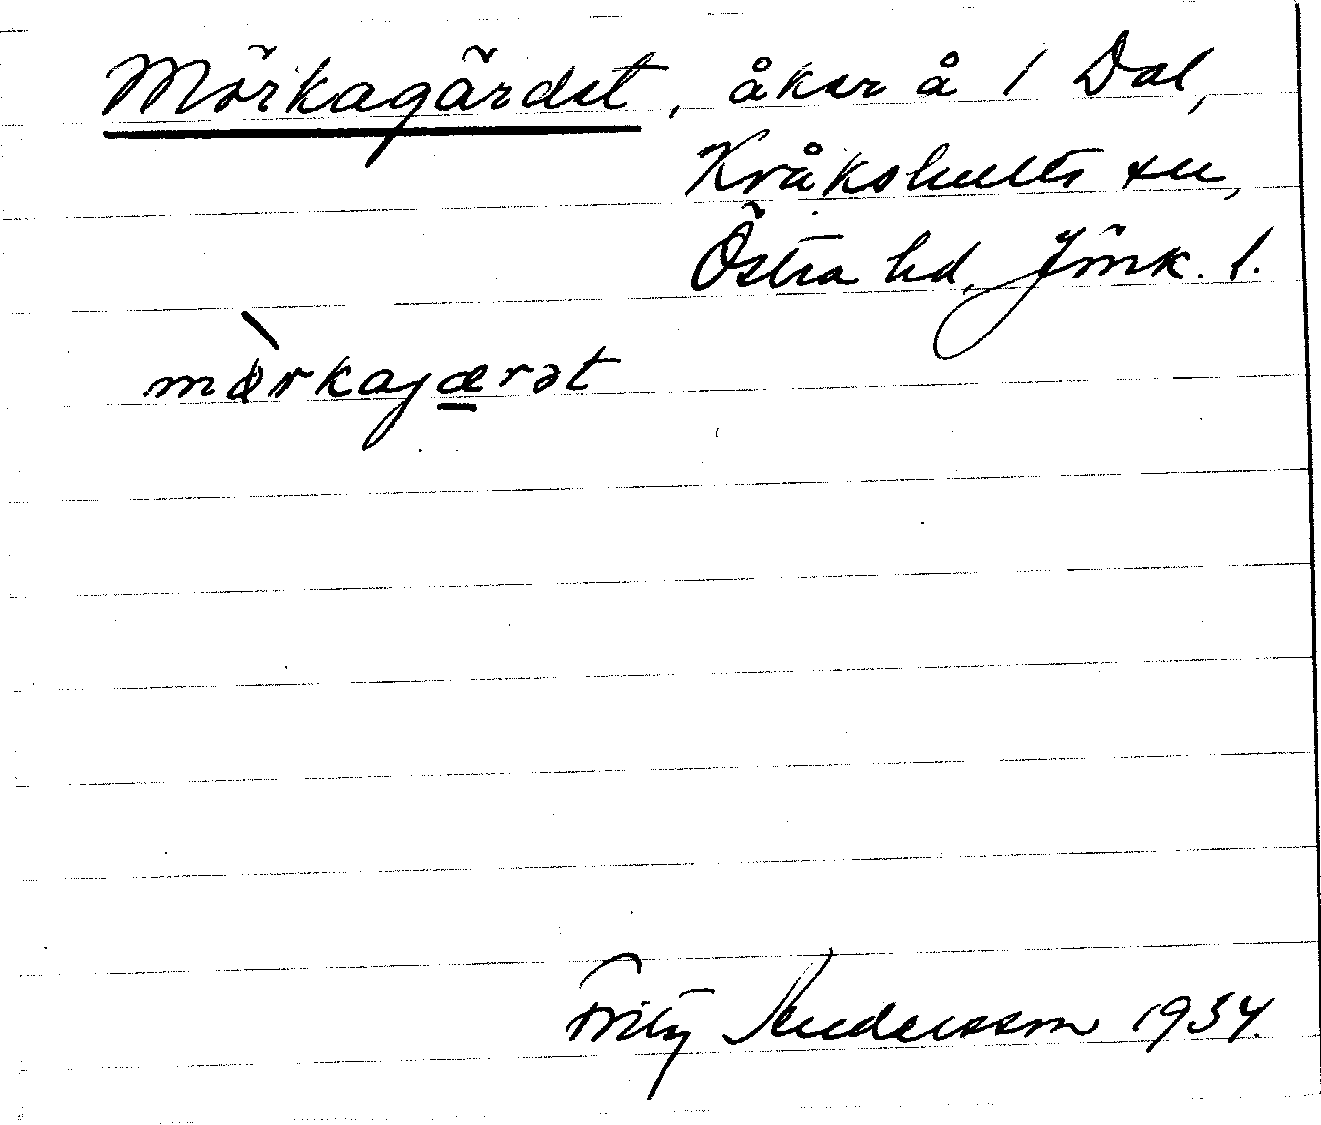 Mörkagärdet, åker å 1 Dal,
Kråkshults sn,
Östra hd, Jönk. l.
mørkajærət
Fritz Andersson 1934.